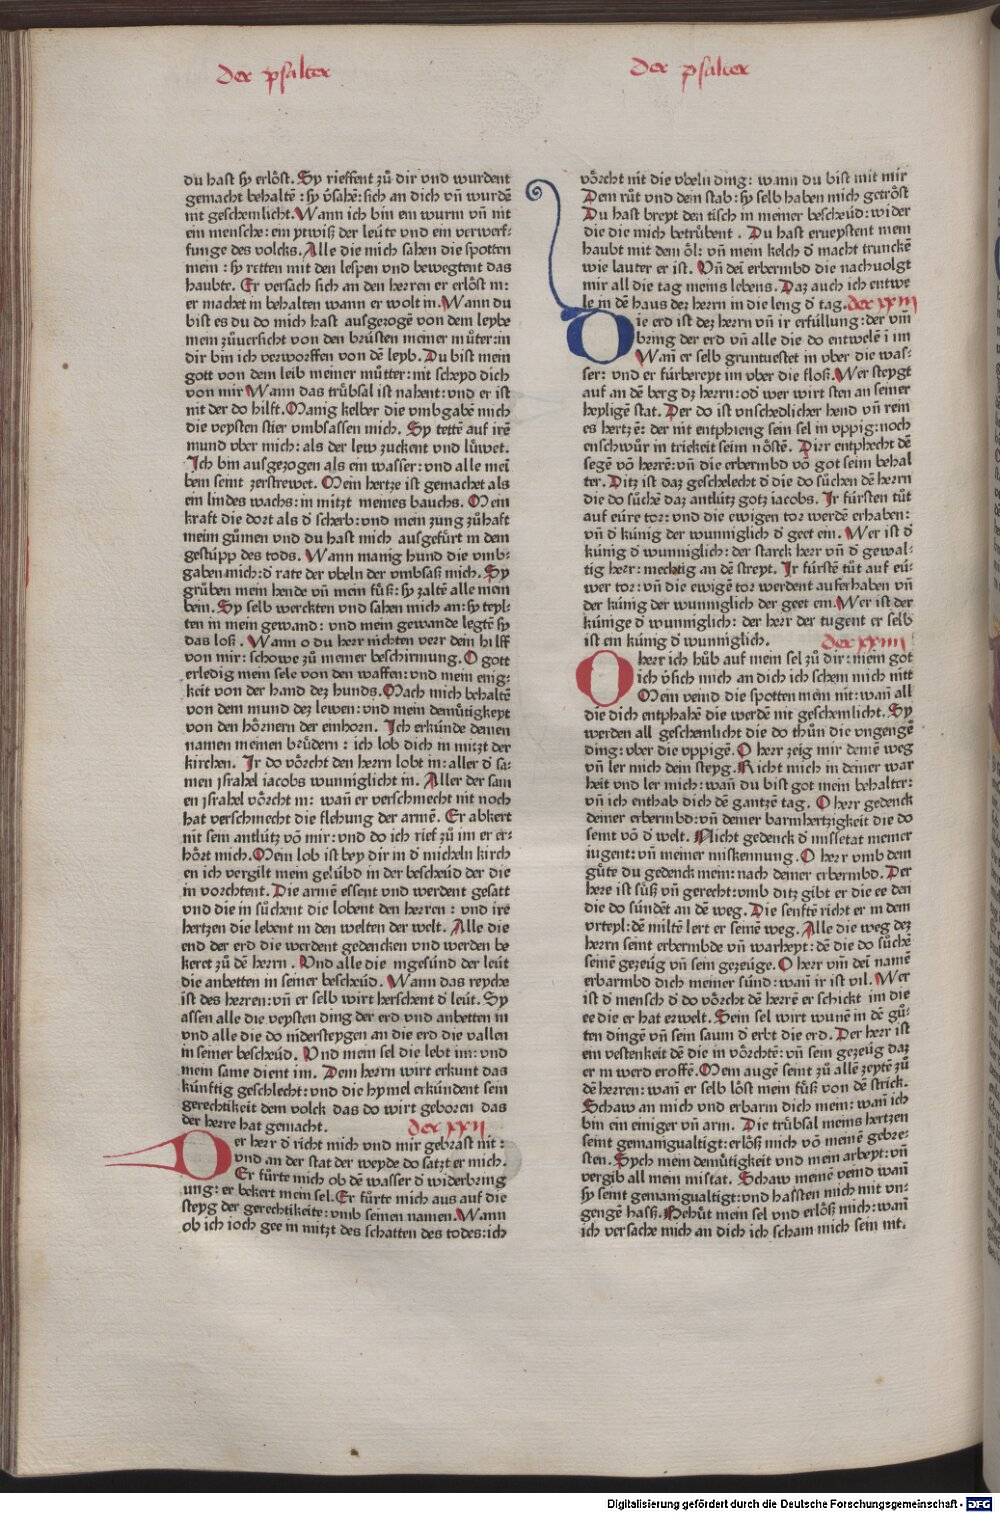 der psalter
du hast sy erlöst. Sy rieffent zů dir vnd wurdent
gemacht behaltē : sy v̄sahē: sich an dich vn̄ wurdē
nit geschemlicht. Wann ich bin ein wurm vn̄ nit
ein mensche: ein ytwiß der leúte vnd ein verwerf⸗
funge des volcks. Alle die mich sahen die spotten
mein : sy retten mit den lespen vnd bewegtent das
haubte. Er versach sich an den herren er erlöst in:
er machet in behalten wann er wolt in. Wann du
bist es du do mich hast ausgezogē von dem leybe
mein zůuersicht von den brústen meiner můter: in
dir bin ich verworffen von dē leyb. Du bist mein
gott von dem leib meiner můtter: nit scheyd dich
von mir Wann das trúbsal ist nahent: vnd er ist
nit der do hilft. Manig kelber die vmbgabē mich
die veysten stier vmbsassen mich. Sy tettē auf irē
mund vber mich: als der lew zuckent vnd lůwet.
Ich bin ausgezogen als ein wasser: vnd alle mei
bein seint zerstrewet. Mein hertze ist gemachet als
ein lindes wachs: in mitzt meines bauchs. Mein
kraft die dort als d̄ scherb: vnd mein zung zůhaft
meim gůmen vnd du hast mich ausgefúrt in dem
gestúpp des tods. Wann manig hund die vmb⸗
gaben mich: d̄ rate der vbeln der vmbsaß mich. Sy
grůben mein hende vn̄ mein fúß: sy zaltē alle mein
bein. Sy selb merckten vnd sahen mich an: sy teyl⸗
ten in mein gewand: vnd mein gewande legtē sy
das loß. Wann o du herr nichten verr dein hilff
von mir: schowe zů meiner beschirmung. O gott
erledig mein sele von den waffen: vnd mein enig⸗
keit von der hand dez hunds. Mach mich behaltē
von dem mund dez lewen: vnd mein demůtigkeyt
von den hörnern der einhorn. Ich erkúnde deinen
namen meinen brůdern : ich lob dich in mitzt der
kirchen. Ir do vörcht den herrn lobt in: aller d̄ sa⸗
men jsrahel iacobs wunniglicht in. Aller der sam
en jsrahel vörcht in: wan̄ er verschmecht nit noch
hat verschmecht die flehung der armē. Er abkert
nit sein antlútz vō mir: vnd do ich rief zů im er er⸗
hört mich. Mein lob ist bey dir in d̄ micheln kirch
en ich vergilt mein gelúbd in der bescheúd der die
in vorchtent. Die armē essent vnd werdent gesatt
vnd die in sůchent die lobent den herren : vnd ire
hertzen die lebent in den welten der welt. Alle die
end der erd die werdent gedencken vnd werden be
keret zů dē herrn . Vnd alle die ingesúnd der leút
die anbetten in seiner bescheúd. Wann das reyche
ist des herren: vn̄ er selb wirt herschent d̄ leút. Sy
assen alle die veysten ding der erd vnd anbetten in
vnd alle die do nidersteygen an die erd die vallen
in seiner bescheúd. Vnd mein sel die lebt im: vnd
mein same dient im. Dem herrn wirt erkunt das
kúnftig geschlecht: vnd die hymel erkúndent sein
gerechtikeit dem volck das do wirt geboren das
der herre hat gemacht. der xxij
Der herr d̄ richt mich vnd mir gebrast nit :
vnd an der stat der weyde do satzt er mich.
Er fúrte mich ob dē wasser d̄ widerbring
ung: er bekert mein sel. Er fúrte mich aus auf die
steyg der gerechtikeite: vmb seinen namen. Wann
ob ich ioch gee in mitzt des schatten des todes: ich
der psalter
vörcht nit die vbeln ding: wann du bist mit mir
Dein růt vnd dein stab: sy selb haben mich getröst
Du hast breyt den tisch in meiner bescheúd: wider
die die mich betrúbent . Du hast erueystent mein
haubt mit dem öl: vn̄ mein kelch d̄ macht trunckē
wie lauter er ist. Vn̄ dei erbermbd die nachuolgt
mir all die tag meins lebens. Daz auch ich entwe
le in dē haus dez herrn in die leng d̄ tag. der xxiij
Die erd ist dez herrn vn̄ ir erfúllung: der vm̄
bring der erd vn̄ alle die do entwelē ī im
Wan̄ er selb gruntuestet in vber die was⸗
ser: vnd er fúrbereyt im vber die floß. Wer steygt
auf an dē berg dz herrn: od̄ wer wirt sten an seiner
heyligē stat. Der do ist vnschedlicher hend vn̄ rein
es hertzē: der nit entphieng sein sel in vppig: noch
enschwůr in triekeit seim nöstē. Dirr entphecht dē
segē vō herrē: vn̄ die erbermbd vō got seim behal
ter. Ditz ist daz geschelecht d̄ die do sůchen dē herrn
die do sůchē daz antlútz gotz iacobs. Ir fúrsten tůt
auf eúre tor: vnd die ewigen tor werdē erhaben:
vn̄ d̄ kúnig der wunniglich d̄ geet ein. Wer ist d̄
kúnig d̄ wunniglich: der starck herr vn̄ d̄ gewal⸗
tig herr: mechtig an dē streyt. Ir fúrstē tůt auf eú⸗
wer tor: vn̄ die ewigē tor werdent auferhaben vn̄
der kúnig der wunniglich der geet ein. Wer ist der
kúnige d̄ wunniglich: der herr der tugent er selb
ist ein kúnig d̄ wunniglich. der xxiiij
O herr ich húb auf mein sel zů dir: mein got
ich v̄sich mich an dich ich schem mich nitt
Mein veind die spotten mein nit: wan̄ all
die dich entphahē die werdē nit geschemlicht. Sy
werden all geschemlicht die do thůn die vngengē
ding: vber die vppigē. O herr zeig mir deinē weg
vn̄ ler mich dein steyg. Richt mich in deiner war
heit vnd ler mich: wan̄ du bist got mein behalter:
vn̄ ich enthab dich dē gantzē tag. O herr gedenck
deiner erbermbd: vn̄ deiner barmhertzigkeit die do
seint vō d̄ welt. Nicht gedenck d̄ missetat meiner
iugent: vn̄ meiner miskennung. O herr vmb dein
gůte du gedenck mein: nach deiner erbermbd. Der
here ist súß vn̄ gerecht: vmb ditz gibt er die ee den
die do súndēt an dē weg. Die senftē richt er in dem
vrteyl: dē miltē lert er seinē weg. Alle die weg dez
herrn seint erbermbde vn̄ warheyt: dē die do sůchē
seinē gezeúg vn̄ sein gezeúge. O herr vm̄ dei namē
erbarmbd dich meiner súnd: wan̄ ir ist vil. Wer
ist d̄ mensch d̄ do vörcht dē herrē er schickt im die
ee die er hat erwelt. Sein sel wirt wunē in dē gů⸗
ten dingē vn̄ sein saum d̄ erbt die erd. Der herr ist
ein vestenkeit dē die in vörchtē: vn̄ sein gezeúg daz
er in werd eroffē. Mein augē seint zů allē zeytē zů
dē herren: wan̄ er selb löst mein fúß von dē strick.
Schaw an mich vnd erbarm dich mein: wan̄ ich
bin ein einiger vn̄ arm. Die trúbsal meins hertzen
seint gemanigualtigt: erlöß mich vō meinē gebre⸗
sten. Sych mein demůtigkeit vnd mein arbeyt: vn̄
vergib all mein mistat. Schaw meinē veind wan̄
sy seint gemanigualtigt: vnd hassten mich mit vn⸗
gengē haß. Behút mein sel vnd erlöß mich: wan̄
ich versache mich an dich ich scham mich sein nit.
Digitalisierung gefördert durch die Deutsche Forschungsgemeinschaft - DFG